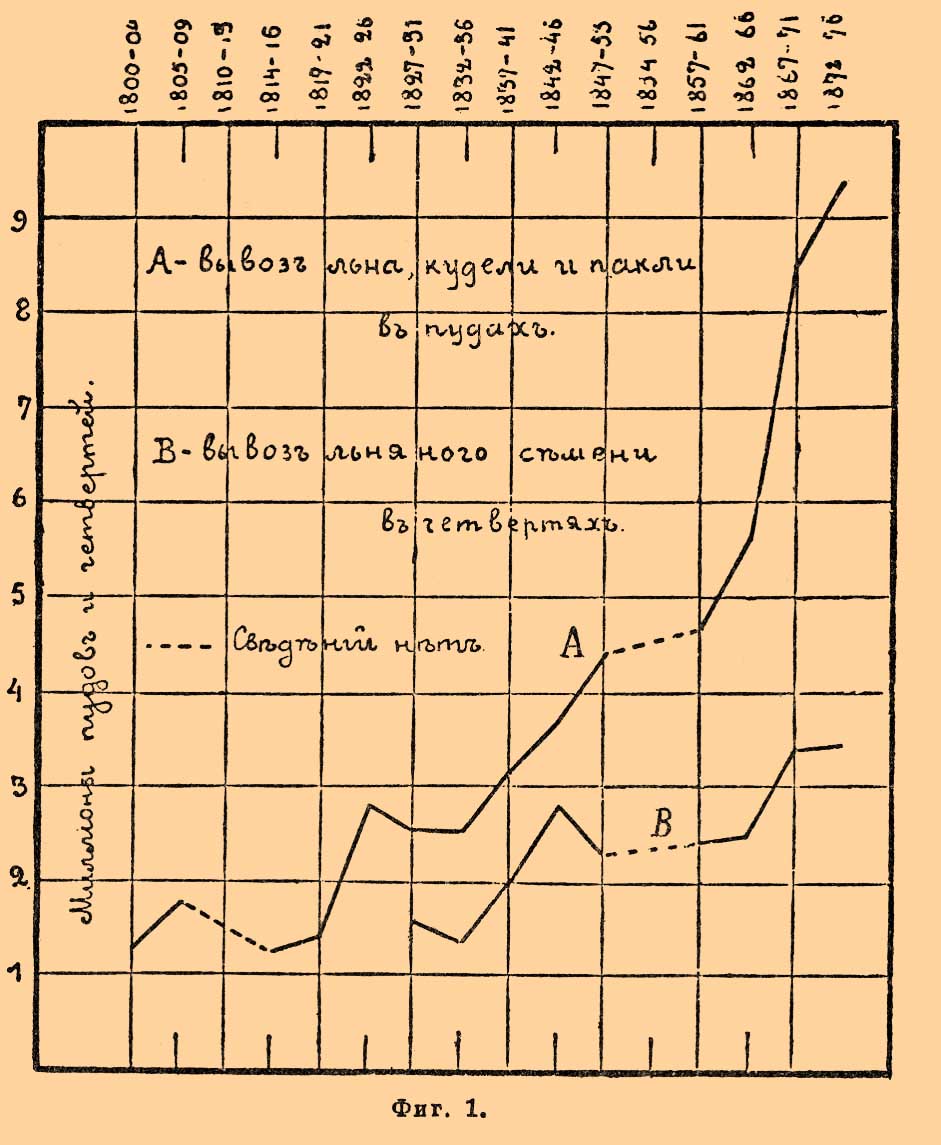 1800-04
1805-09
1810-13
1814-16
1817-21
1822 26
1827-31
1832-36
1837-41
1842-46
1847-53
1854 56
1857-61
1862 66
1867-71
1872 76
9
8
7
6
5
4
3
2
1
Миллионы пудовъ и четвертей.
А- вывозъ льна, кудели и пакли
въ пудахъ.
В- вывозъ льняного сѣмени
въ четвертяхъ.
Свѣдѣній нѣтъ.
А
В
Фиг. 1.